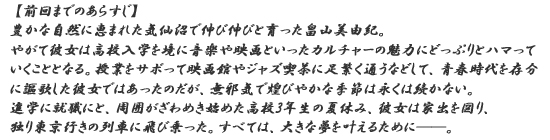 【前回までのあらすじ】
豊かな自然に恵まれた気仙沼で伸び伸びと育った畠山美由紀。
やがて彼女は高校入学を境に音楽や映画といったカルチャーの魅力にどっぷりとハマって
いくこととなる。授業をサボって映画館やジャズ喫茶に足繁く通うなどして、青春時代を存分
に謳歌した彼女ではあったのだが、無邪気で煌びやかな季節は永くは続かない。
進学に就職にと、周囲がざわめき始めた高校3年生の夏休み、彼女は家出を図り、
独り東京行きの列車に飛び乗った。すべては、大きな夢を叶えるために――。